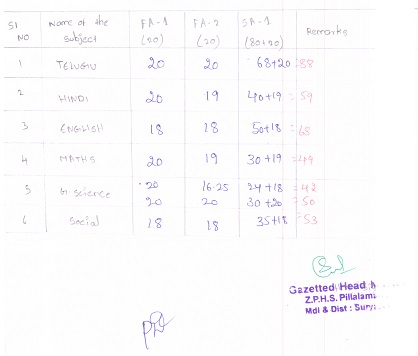 Sl NO Name of the subject FA-1 (20) FA-2 (20) SA-1 (80+20) Remarks
1 TELUGU 20 20 68+20 =88
2 HINDI 20 19 40+19 =59
3 ENGLISH 18 18 50+18 =68
4 MATHS 20 19 30+19 =49
5 G.science 20 16.25 24+18 =42
20 20 30+20 =50
6 Social 18 18 35+18 =53
Gazetted Head
Z.P.H.S. Pillalam
Mdl & Dist : Surya